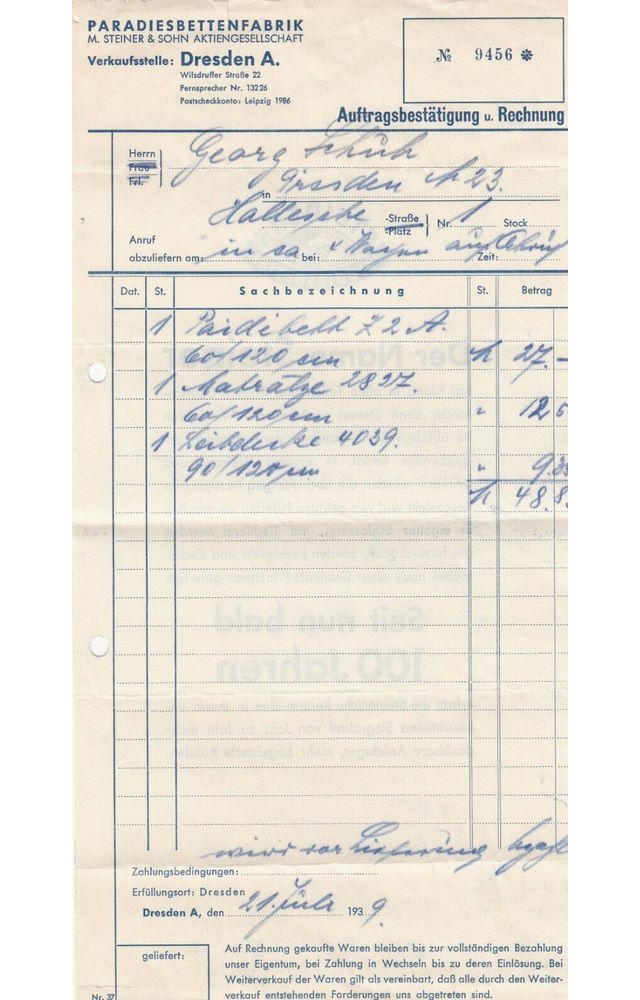 PARADIESBETTENFABRIK
M. STEINER & SOHN AKTIENGESELLSCHAFT
Verkaufsstelle: Dresden A.
Wilsdruffer Straße 22
Fernsprecher Nr. 13226
Postscheckkonto: Leipzig 1986
№ 9456 ✻
Auftragsbestätigung u. Rechnung
Herrn Georg Schuh
Frau
Frl.
in Dresden A 23.
Hallesche -Straße Nr. 1 Stock
-Platz
Anruf
abzuliefern am: in ca bei: Wagen Zeit:
Dat. St. Sachbezeichnung St. Betrag
1 Paidibett Z 2 A.
60/120 cm M 27.–
1 Matratze 2827.
60/120 cm " 12 5
1 Leibdecke 4039.
90/120 cm "
M 48.8
wird vor Lieferung
Zahlungsbedingungen:
Erfüllungsort: Dresden
Dresden A, den 21. Juli 1939.
geliefert:
Auf Rechnung gekaufte Waren bleiben bis zur vollständigen Bezahlung
unser Eigentum, bei Zahlung in Wechseln bis zu deren Einlösung. Bei
Weiterverkauf der Waren gilt als vereinbart, daß alle durch den Weiter-
verkauf entstehenden Forderungen uns abgetreten sind.
Nr. 37